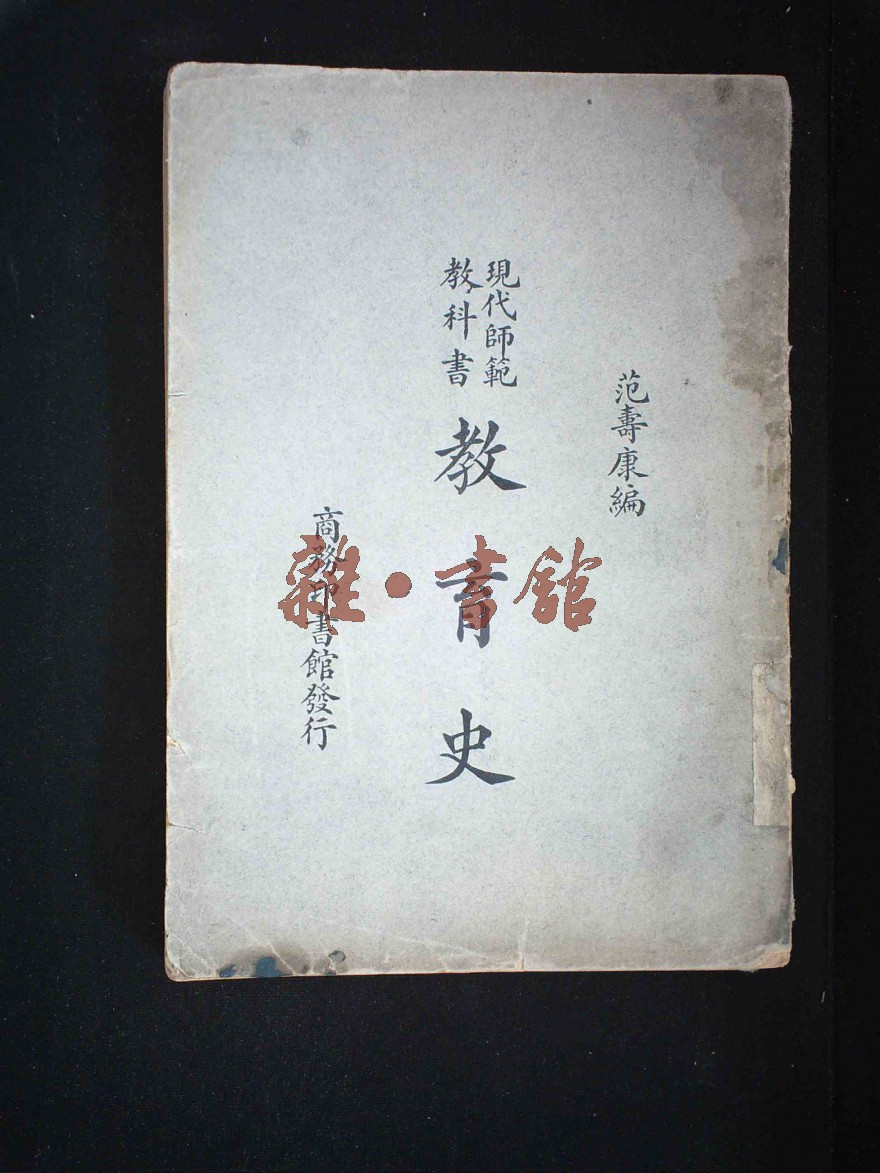 范壽康編
現代師範
教科書
教育史
商務印書館發行
雜·書館